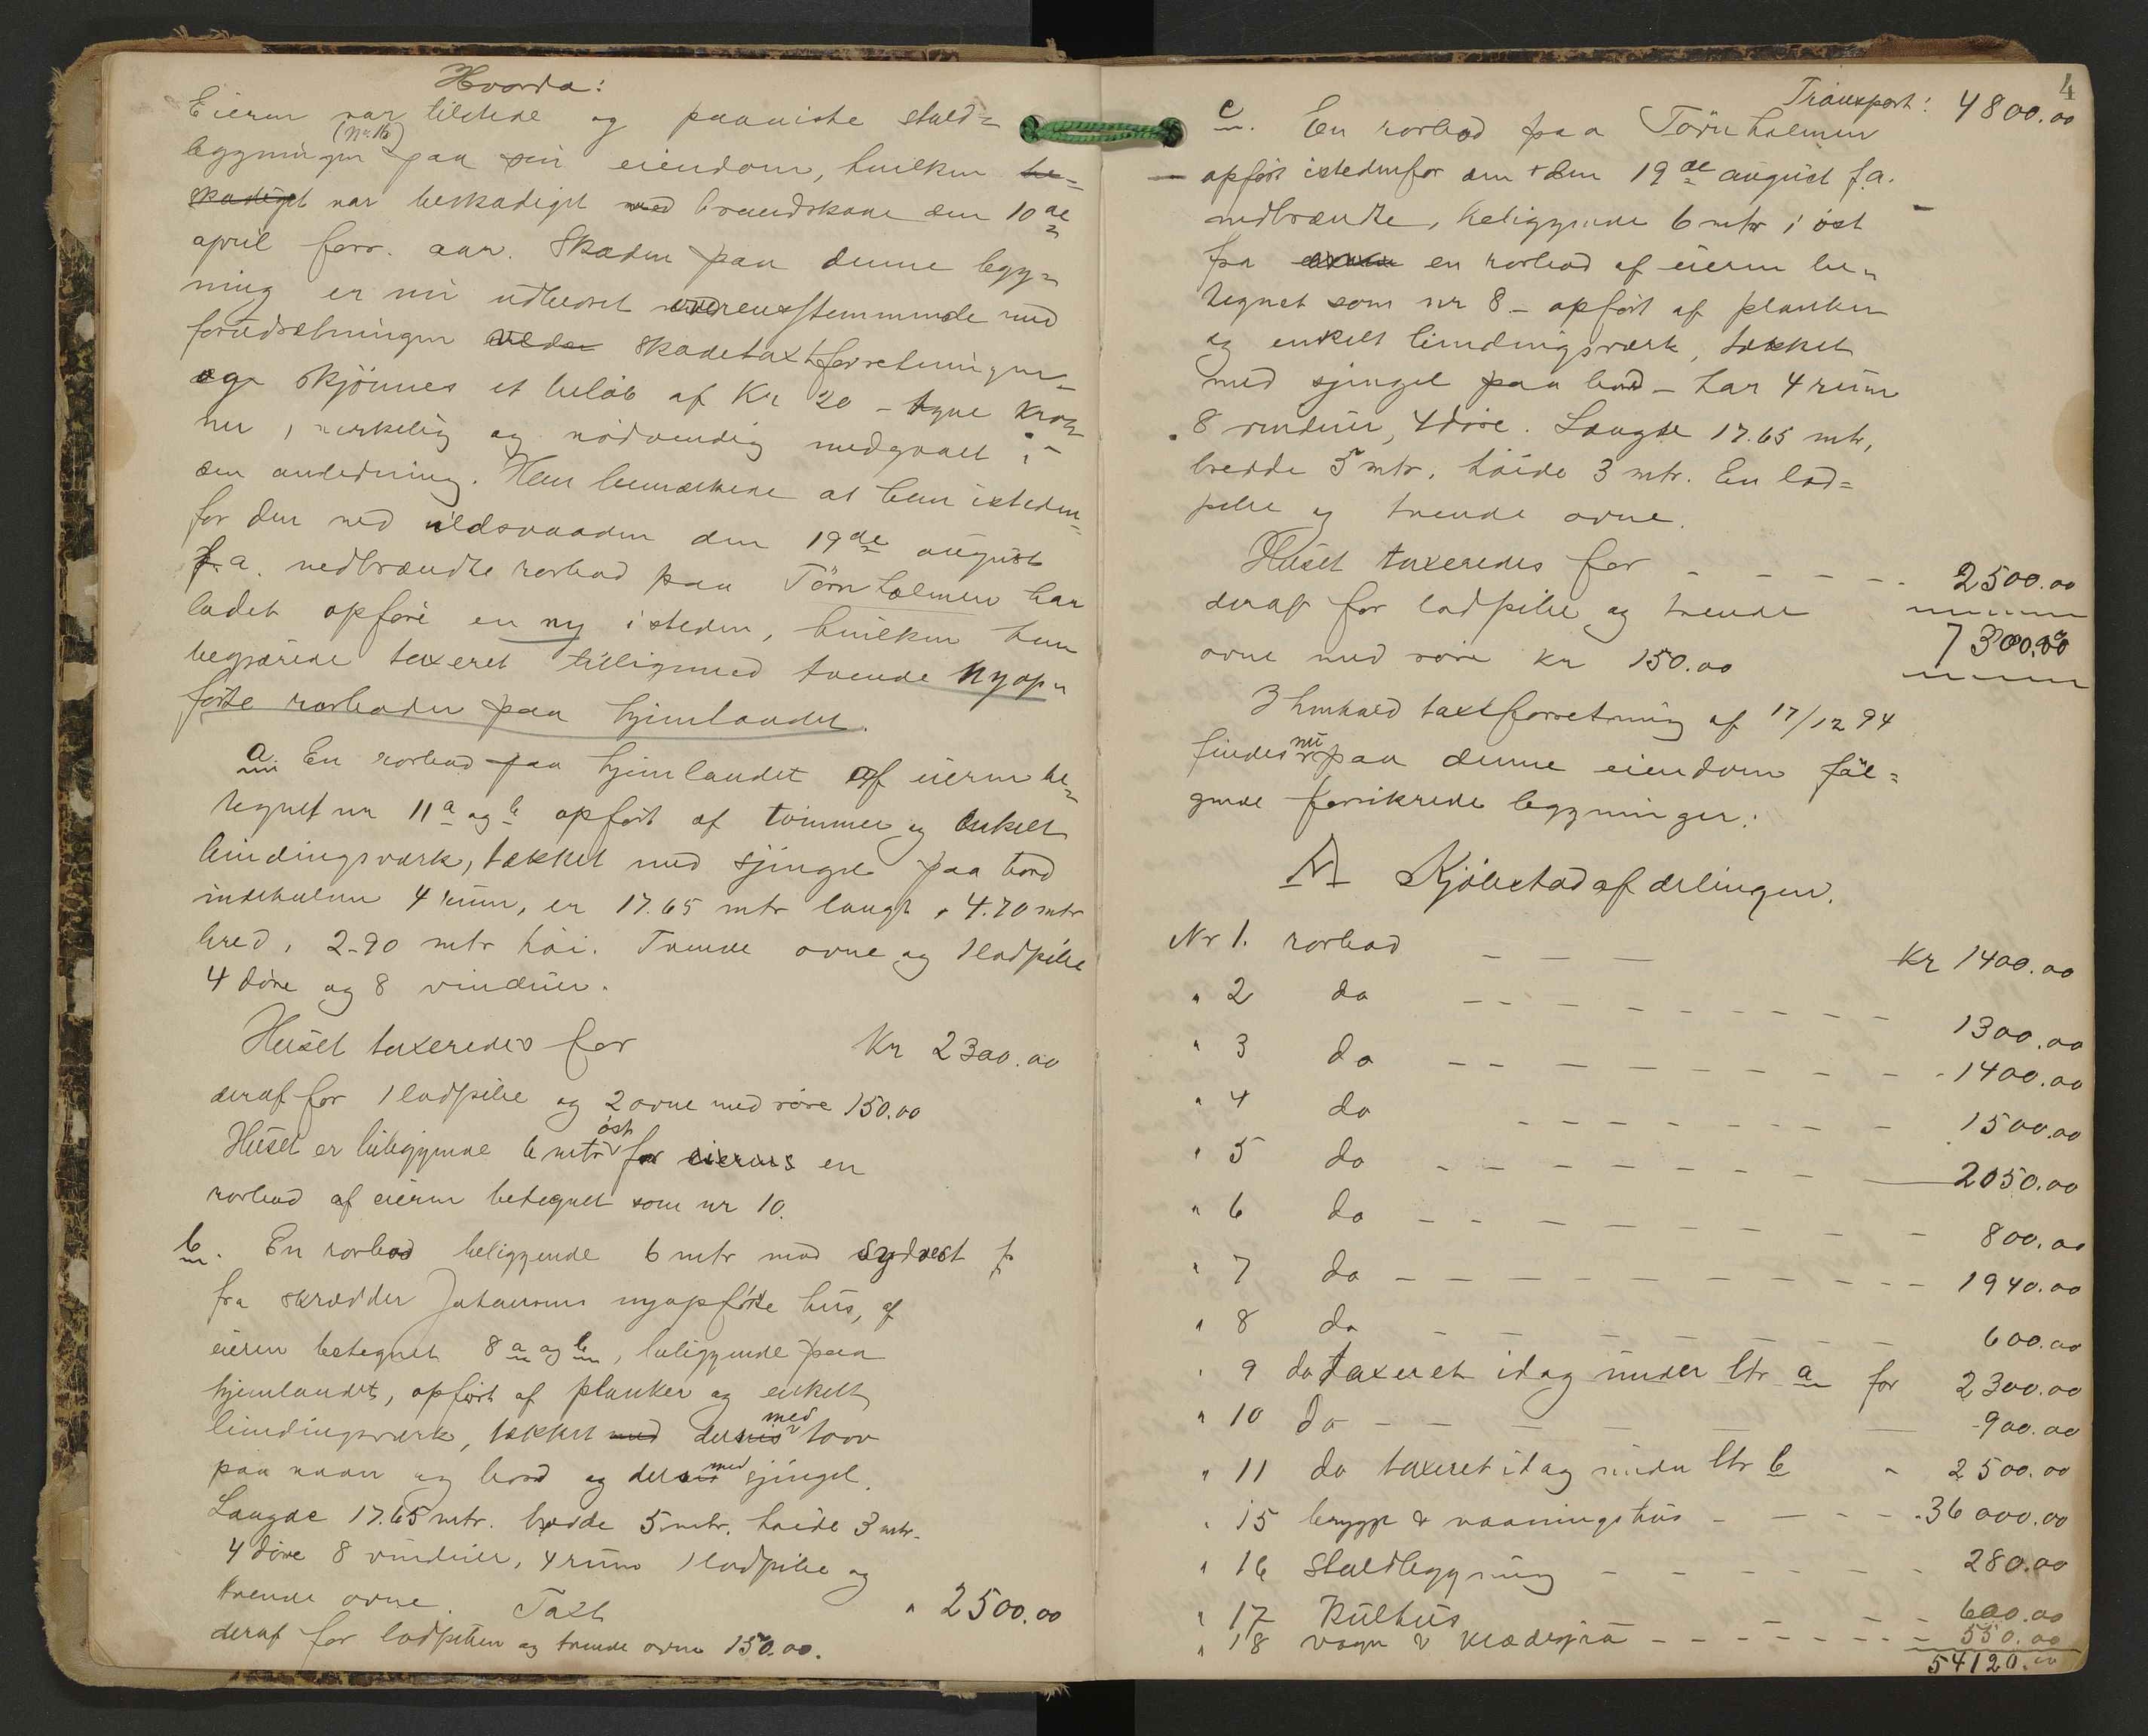 Hvorda:
Eieren var tilstede og paaviste stald=
bygningen (Nr. 16) paa sin eiendom, hvilken be=
skadiget var beskadiget ved brandskade den 10de
april forr. aar. Skaden paa denne byg=
ning er nu udbedret overensstemmende med
forudsætningen ved skadetaxtforretningen
og skjönnes et belöb af Kr 20 - tyve kro=
ner, virkelig og nödvendig medgaaet i
den anledning. Han bemærkede at han isteden=
for den ved ildsvaaden den 19de august
f.a. nedbrændte rorbod paa Törnholmen har
ladet opföre en ny isteden, hvilken han
begjærede taxeret tilligemed tvende nyop=
förte rorboder paa hjemlandet.
a. En rorbod paa hjemlandet af eieren be=
tegnet nr 11 a og b opfört af tömmer og enkelt
bindingsværk, tækket med sjingel paa bord
indeholder 4 rum, er 17.65 mtr langt, 4.70 mtr
bred, 2.90 mtr höi. Tvende ovne og 1 ladpibe
4 döre og 8 vinduer.
Huset taxeredes for Kr 2300.00
deraf for 1 ladpibe og 2 ovne med röre 150.00
Huset er beliggende 6 mtr öst for eierens en
rorbod af eieren betegnet som nr 10.
b. En rorbod beliggende 6 mtr mod sydvest f
fra skrædder Johansens nyopförte hus, af
eieren betegnet 8 a og b, beliggende paa
hjemlandet, opfört af planker og enkelt
bindingsværk, tækket med delvis med torv
paa næver og bord og delvis med sjingel.
Længde 17.65 mtr. bredde 5 mtr. höide 3 mtr.
4 döre 8 vinduer, 4 rum 1 ladpibe og
tvende ovne. Taxt " 2500.00
deraf for ladpiben og tvende ovne 150.00.
4
Transport: 4800.00
c. En rorbod paa Törnholmen
opfört istedenfor den den 19de august f.a.
nedbrændte, beliggende 6 mtr i öst
fra en rorbod af eieren be=
tegnet som nr 8 - opfört af planker
og enkelt bindingsværk, tækket
med sjingel paa bord - har 4 rum
8 vinduer, 4 döre. Længde 17.65 mtr,
bredde 5 mtr, höide 3 mtr. En lad=
pibe og tvende ovne.
Huset taxeredes for - - - - - 2500.00
deraf for ladpibe og tvende
7300.00
ovne med röre kr 150.00
I henhold taxtforretning af 17/12 94
findes nu paa denne eiendom föl=
gende forsikrede bygninger:
A Kjöbstadafdelingen.
Nr 1. rorbod - - - Kr 1400.00
" 2 do - - - - - - - - 1300.00
" 3 do - - - - - - - - 1400.00
" 4 do - - - - - - - 1500.00
" 5 do - - - - - - - - 2050.00
" 6 do - - - - - - - - 800.00
" 7 do - - - - - - - - - 1940.00
" 8 do - - - - - - - 600.00
" 9 do taxeret idag under ltr a for 2300.00
" 10 do - - - - - - 900.00
" 11 do taxeret idag under ltr b " 2500.00
" 15 brygge & vaaningshus - - - - 36000.00
" 16 staldbygning - - - - - - 280.00
" 17 Kulhus - - - 600.00
" 18 vogn & - - - - - - - 550.00
54120.00